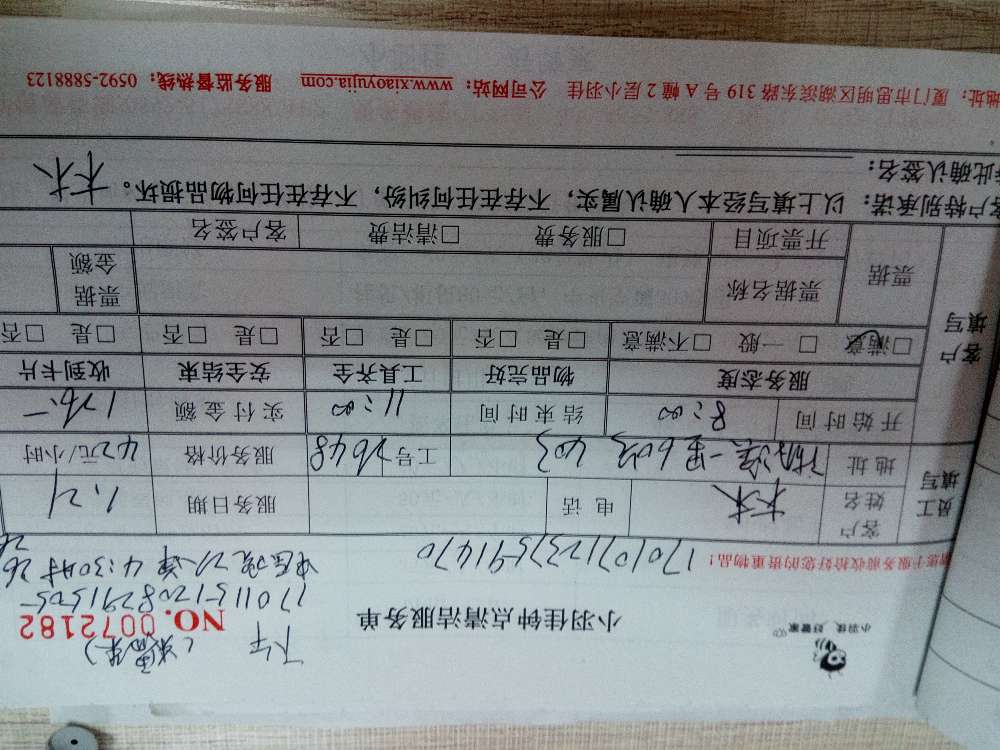 小羽佳 好管家
小羽佳钟点清洁服务单
下午
NO. 0072182
1701151208291505
请您于服务前收拾好您的贵重物品！
17010712375591470
4:30时
员工填写
客户姓名
林
电话
服务日期
1.21
地址
工号
2648
服务价格
42元/小时
开始时间
8:00
结束时间
11:00
实付金额
126.-
客户填写
服务态度
物品完好
工具齐全
安全结束
收到卡片
□满意 □一般 □不满意
□是 □否
□是 □否
□是 □否
□是 □否
票据
票据名称
票据金额
开票项目
□服务费 □清洁费
客户签名
客户特别承诺：以上填写经本人确认属实，不存在任何纠纷，不存在任何物品损坏。
特此确认签名：
林
地址：厦门市思明区湖滨东路 319 号 A 幢 2 层小羽佳 公司网站：www.xiaoyujia.com 服务监督热线：0592-5888123